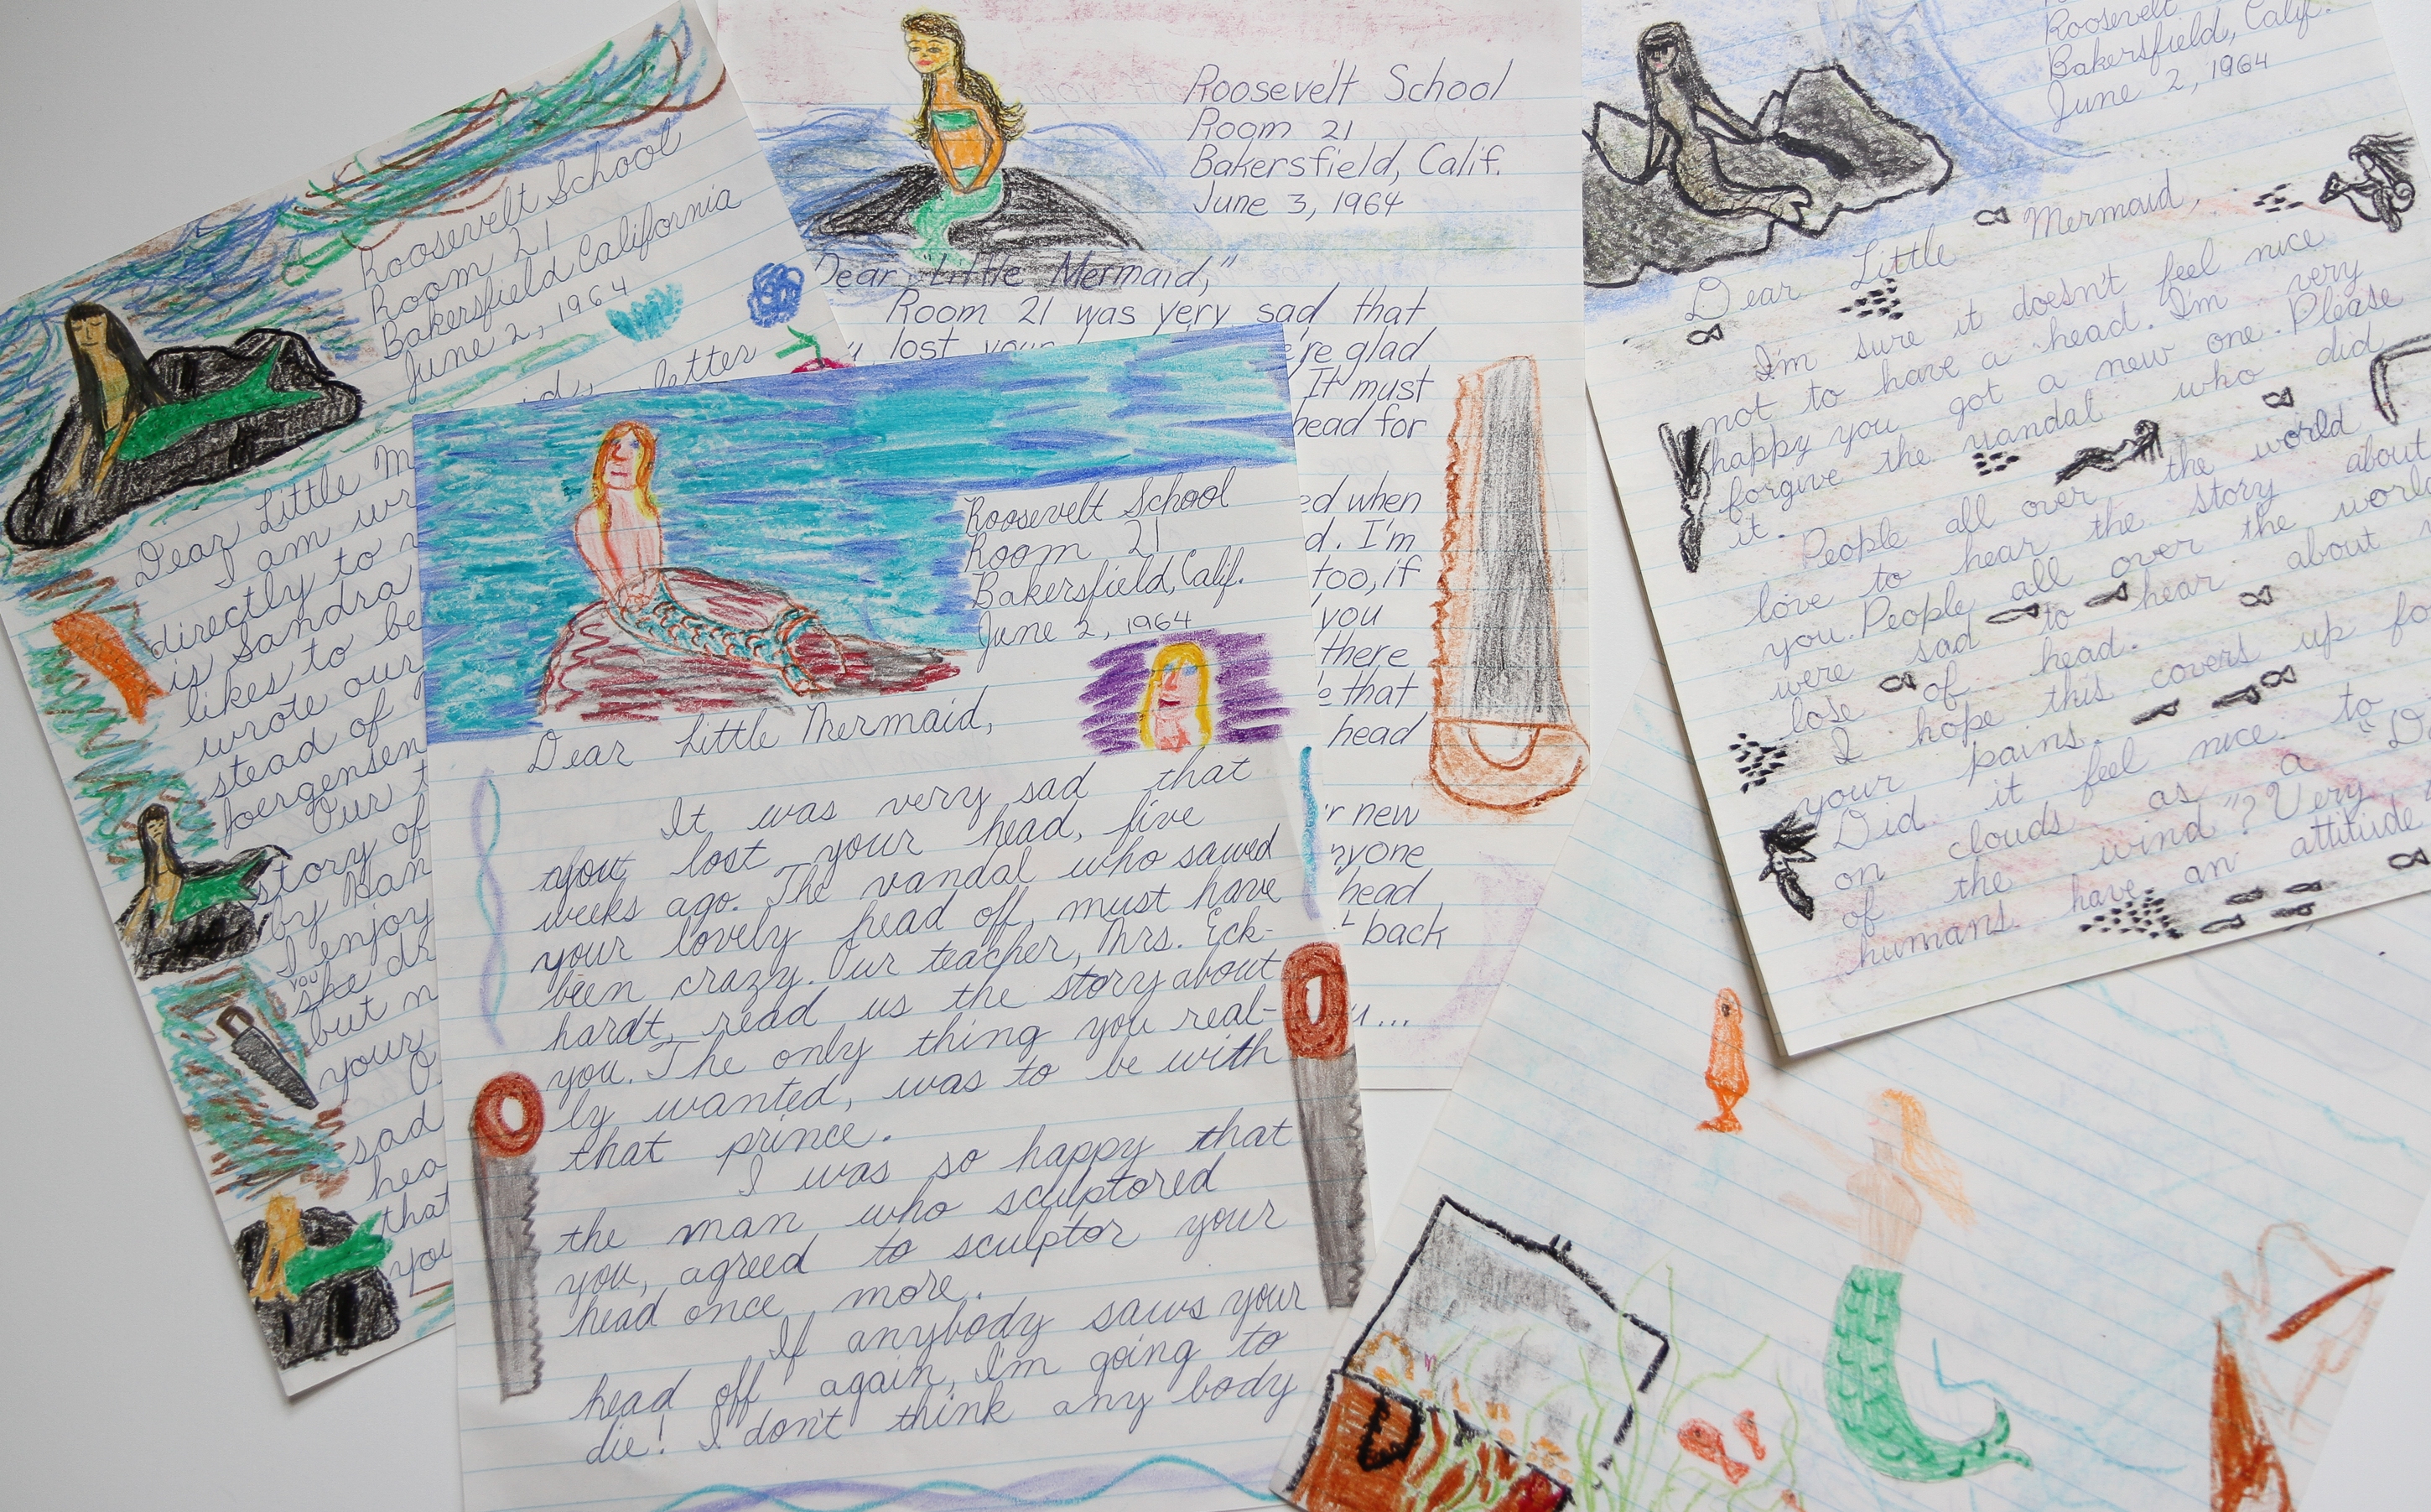 Roosevelt School
Room 21
Bakersfield California
June 2, 1964
letter
Dear Little M
I am wr
directly to
is Sandra
likes to be
wrote our
stead of
Joergensen
Our
story of
by Han
I enjoy
you
she dr
but n
your
O
sad
hea
that
you
Roosevelt School
Room 21
Bakersfield, Calif.
June 3, 1964
Dear "Little Mermaid,"
Room 21 was very sad that
lost your 're glad
It must
head for
ed when
d. I'm
too, if
you
there
that
head
new
nyone
head
back
...
Roosevelt School
Room 21
Bakersfield, Calif.
June 2, 1964
Dear Little Mermaid,
It was very sad that
you lost your head, five
weeks ago. The vandal who sawed
your lovely head off, must have
been crazy. Our teacher, Mrs. Eck-
hardt, read us the story about
you. The only thing you real-
ly wanted, was to be with
that prince.
I was so happy that
the man who sculptored
you, agreed to sculptor your
head once more.
If anybody saws your
head off again, I'm going to
die! I don't think any body
Roosevelt
Bakersfield, Calif.
June 2, 1964
Dear Little Mermaid,
I'm sure it doesn't feel nice
not to have a head. I'm very
happy you got a new one. Please
forgive the vandal who did
it.
People all over the world
love to hear the story about
you. People all over the world
were sad to hear about
lose of head.
I hope this covers up fo
your pains.
Did it feel nice to
on clouds as a "Da
of the wind"? Very
humans have an attitude